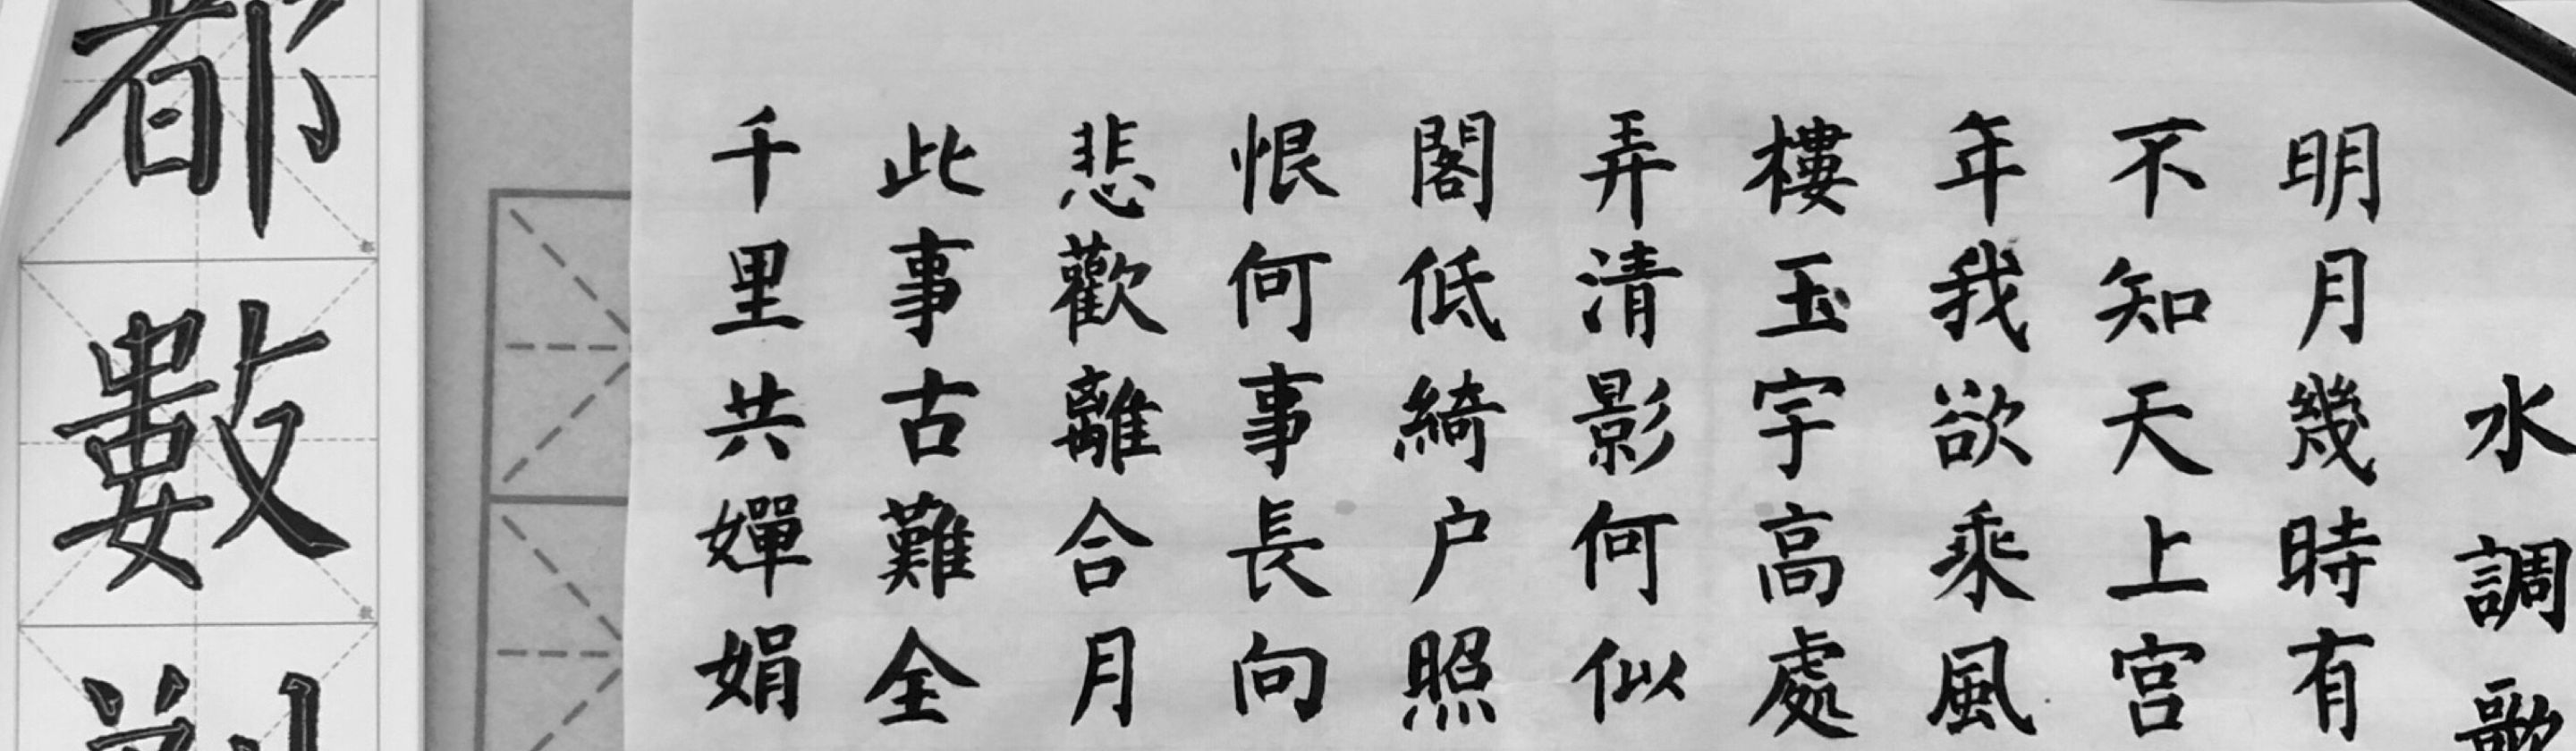 水調歌
明月幾時有
不知天上宮
年我欲乘風
樓玉宇高處
弄清影何似
閣低綺户照
恨何事長向
悲歡離合月
此事古難全
千里共嬋娟
都
數